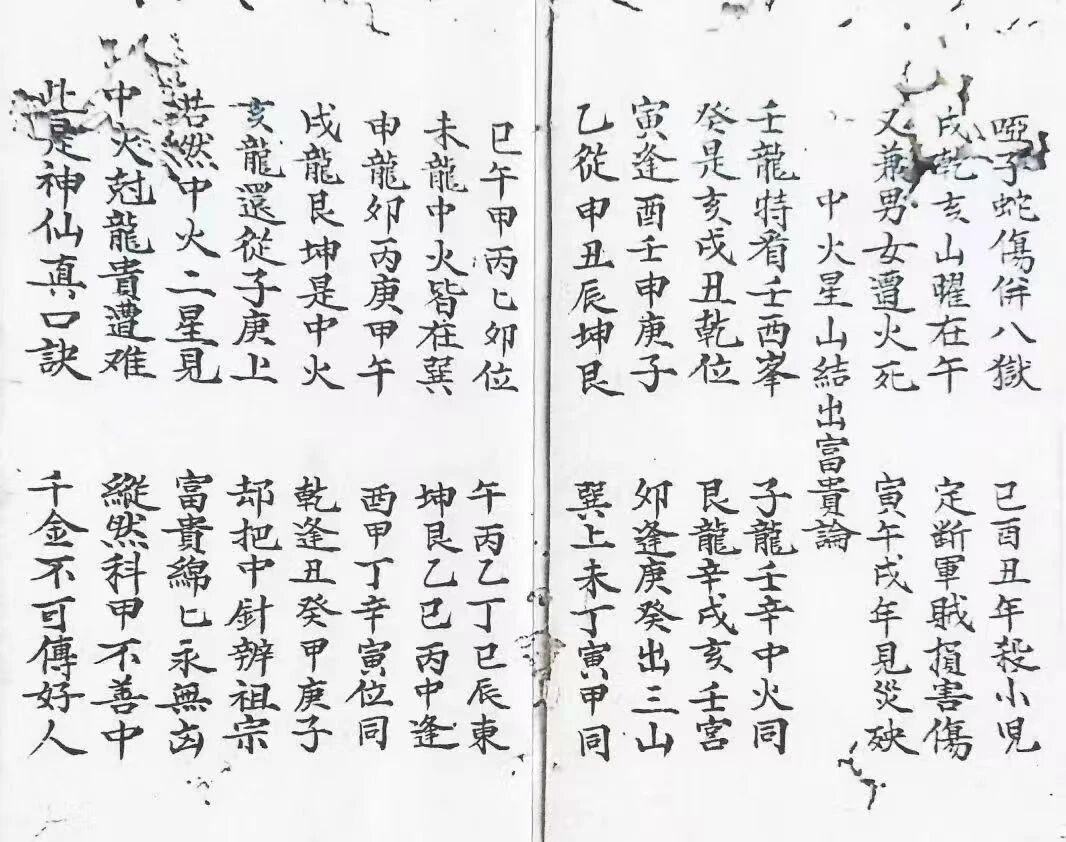 啞子蛇傷併八獄 巳酉丑年殺小児
戌乾亥山曜在午 定斷軍賊損害傷
又兼男女遭火死 寅午戌年見災殃
中火星山結出富貴論
壬龍特看壬酉峯 子龍壬辛中火同
癸是亥戌丑乾位 艮龍辛戌亥壬宮
寅逢酉壬申庚子 夘逢庚癸出三山
乙從申丑辰坤艮 巽上未丁寅甲同
巳午甲丙匕夘位 午丙乙丁巳辰東
未龍中火皆在巽 坤艮乙巳丙中逢
申龍夘丙庚甲午 酉甲丁辛寅位同
戌龍艮坤是中火 乾逢丑癸甲庚子
亥龍還從子庚上 却把中針辨祖宗
若然中火二星見 富貴綿匕永無凶
中火尅龍貴遭难 縱然科甲不善中
此是神仙真口訣 千金不可傳好人